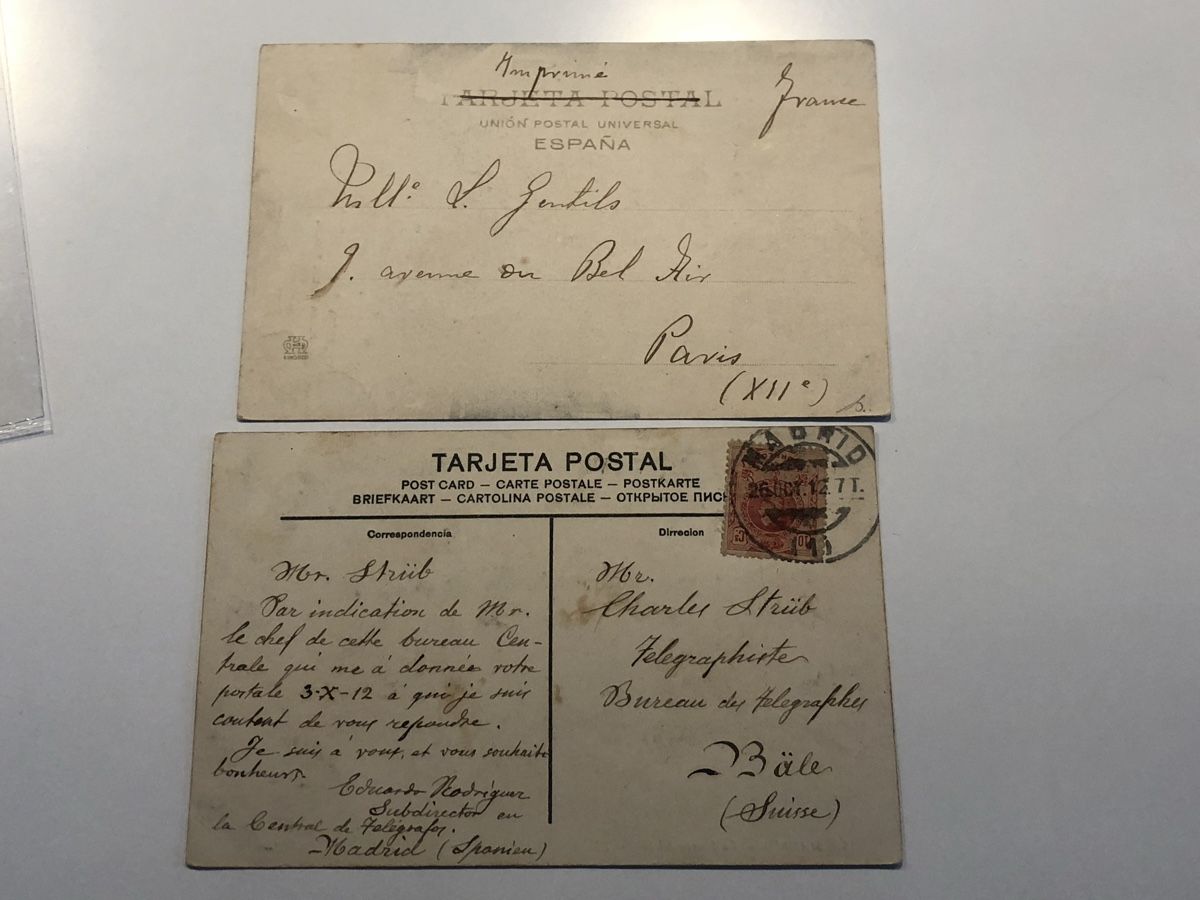 Imprimé
France
TARJETA POSTAL
UNIÓN POSTAL UNIVERSAL
ESPAÑA
Mlle. L. Gentils
9. avenue du Bel Air
Paris
(XIIe)
TARJETA POSTAL
POST CARD — CARTE POSTALE — POSTKARTE
BRIEFKAART — CARTOLINA POSTALE — ОТКРЫТОЕ ПИСЬ
MADRID
26.OCT.12.7T.
Correspondencia
Mr. Strüb
Par indication de Mr.
le chef de cette bureau Cen-
trale qui me à donnée votre
postale 3-X-12 à qui je suis
content de vous repondre.
Je suis à vous, et vous souhaite
bonheurs.
Eduardo Rodriguez
Subdirector en
la Central de Telégrafos.
Madrid (Spanien)
Dirrecion
Mr.
Charles Strüb
Telegraphiste
Bureau des Telegraphes
Bäle
(Suisse)